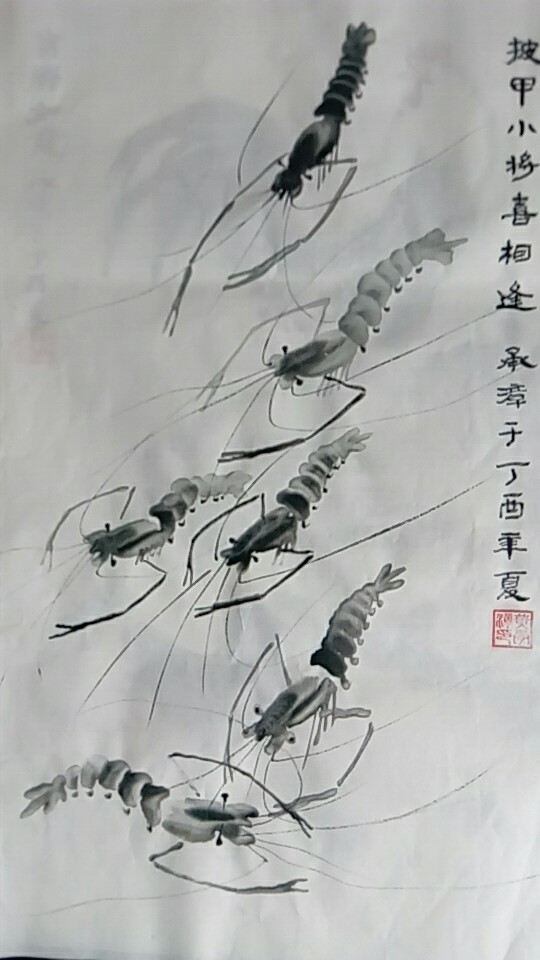 披甲小将喜相逢 承漳于丁酉年夏